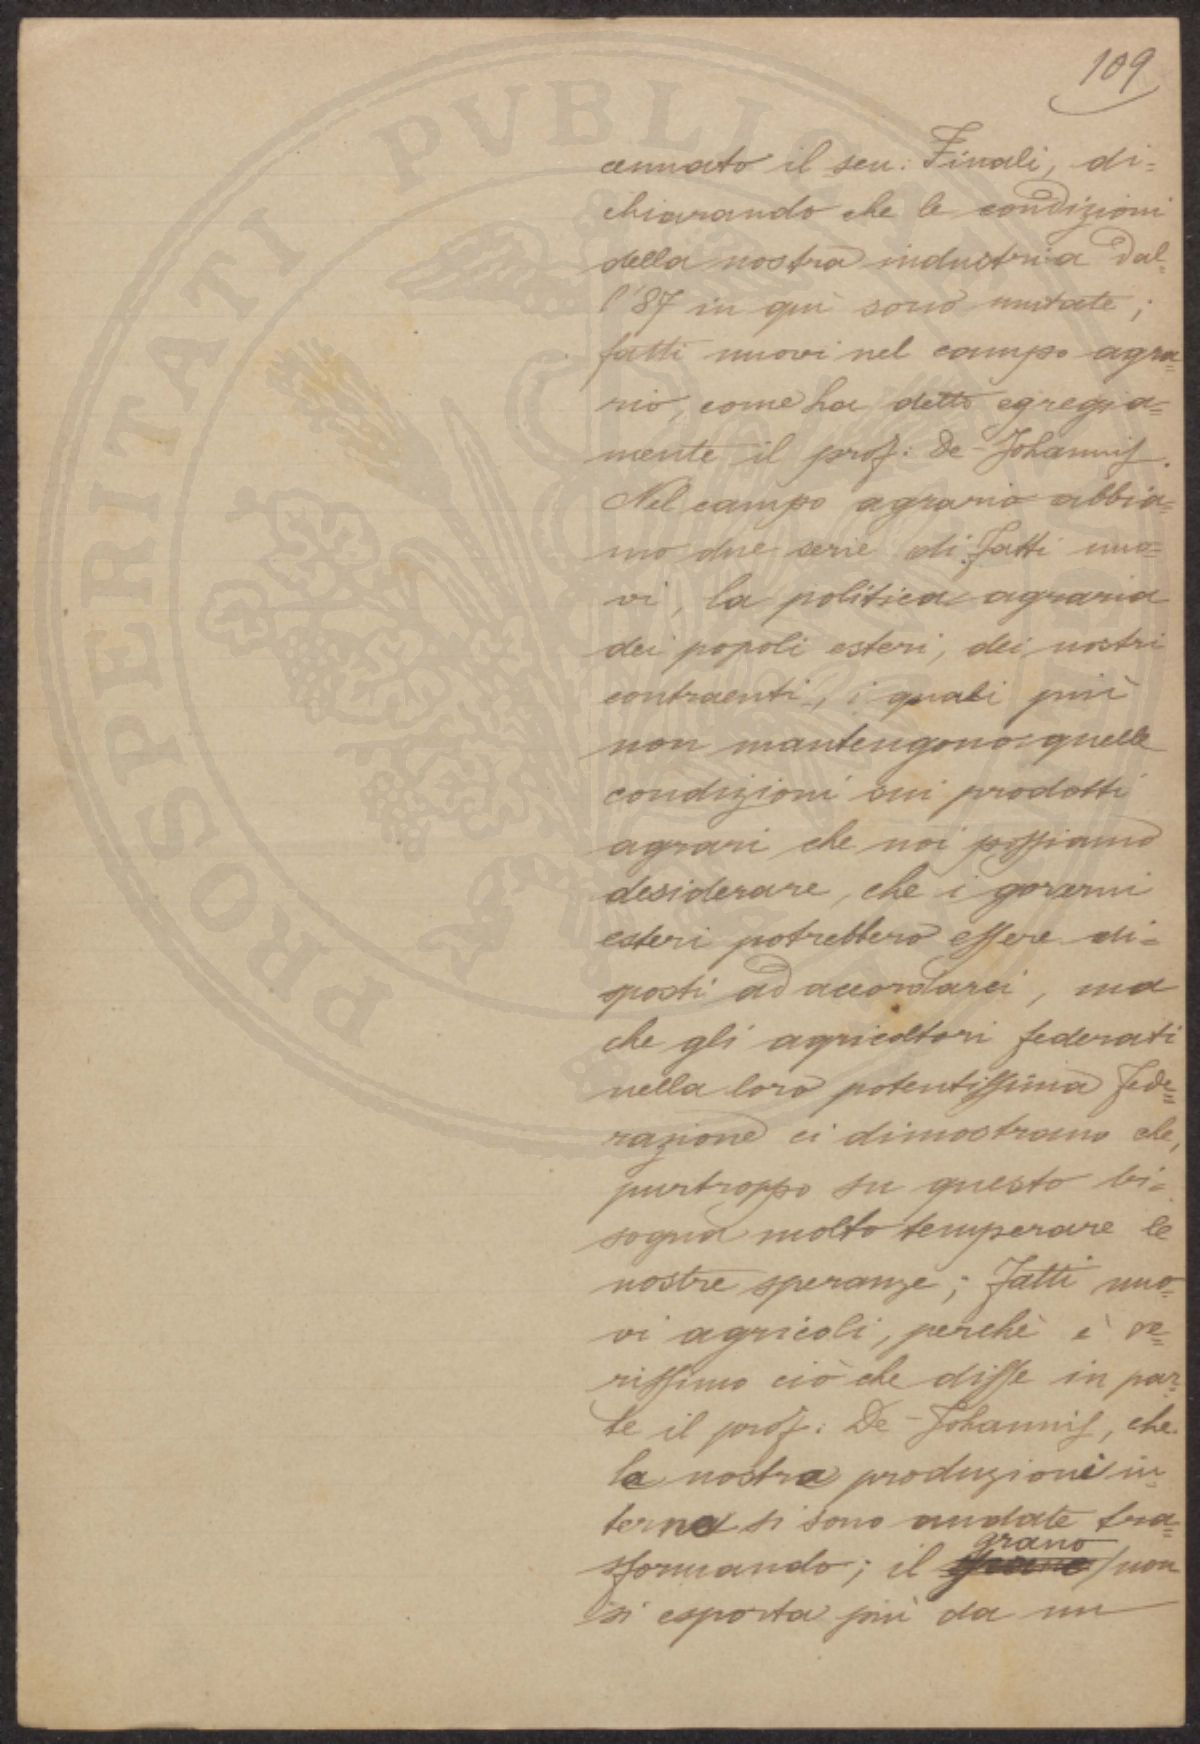 109
cennato il sen: Finali, di=
chiarando che le condizioni
della nostra industria dal=
l'87 in qui sono mutate;
fatti nuovi nel campo agra=
rio, come ha detto egregia=
mente il prof: De-Johannis.
Nel campo agrario abbia=
mo due serie di fatti nuo=
vi, la politica agraria
dei popoli esteri, dei nostri
contraenti, i quali più
non mantengono quelle
condizioni sui prodotti
agrari che noi possiamo
desiderare, che i governi
esteri potrebbero essere di=
sposti ad accordarci, ma
che gli agricoltori federati
nella loro potentissima fede=
razione ci dimostrano che,
purtroppo su questo bi=
sogna molto temperare le
nostre speranze; fatti nuo=
vi agricoli, perchè è ve=
rissimo ciò che disse in par=
te il prof: De-Johannis, che
la nostra produzioni in=
terna si sono andate tra=
sformando; il grano non
si esporta più da un
PROSPERITATI PVBLICAE